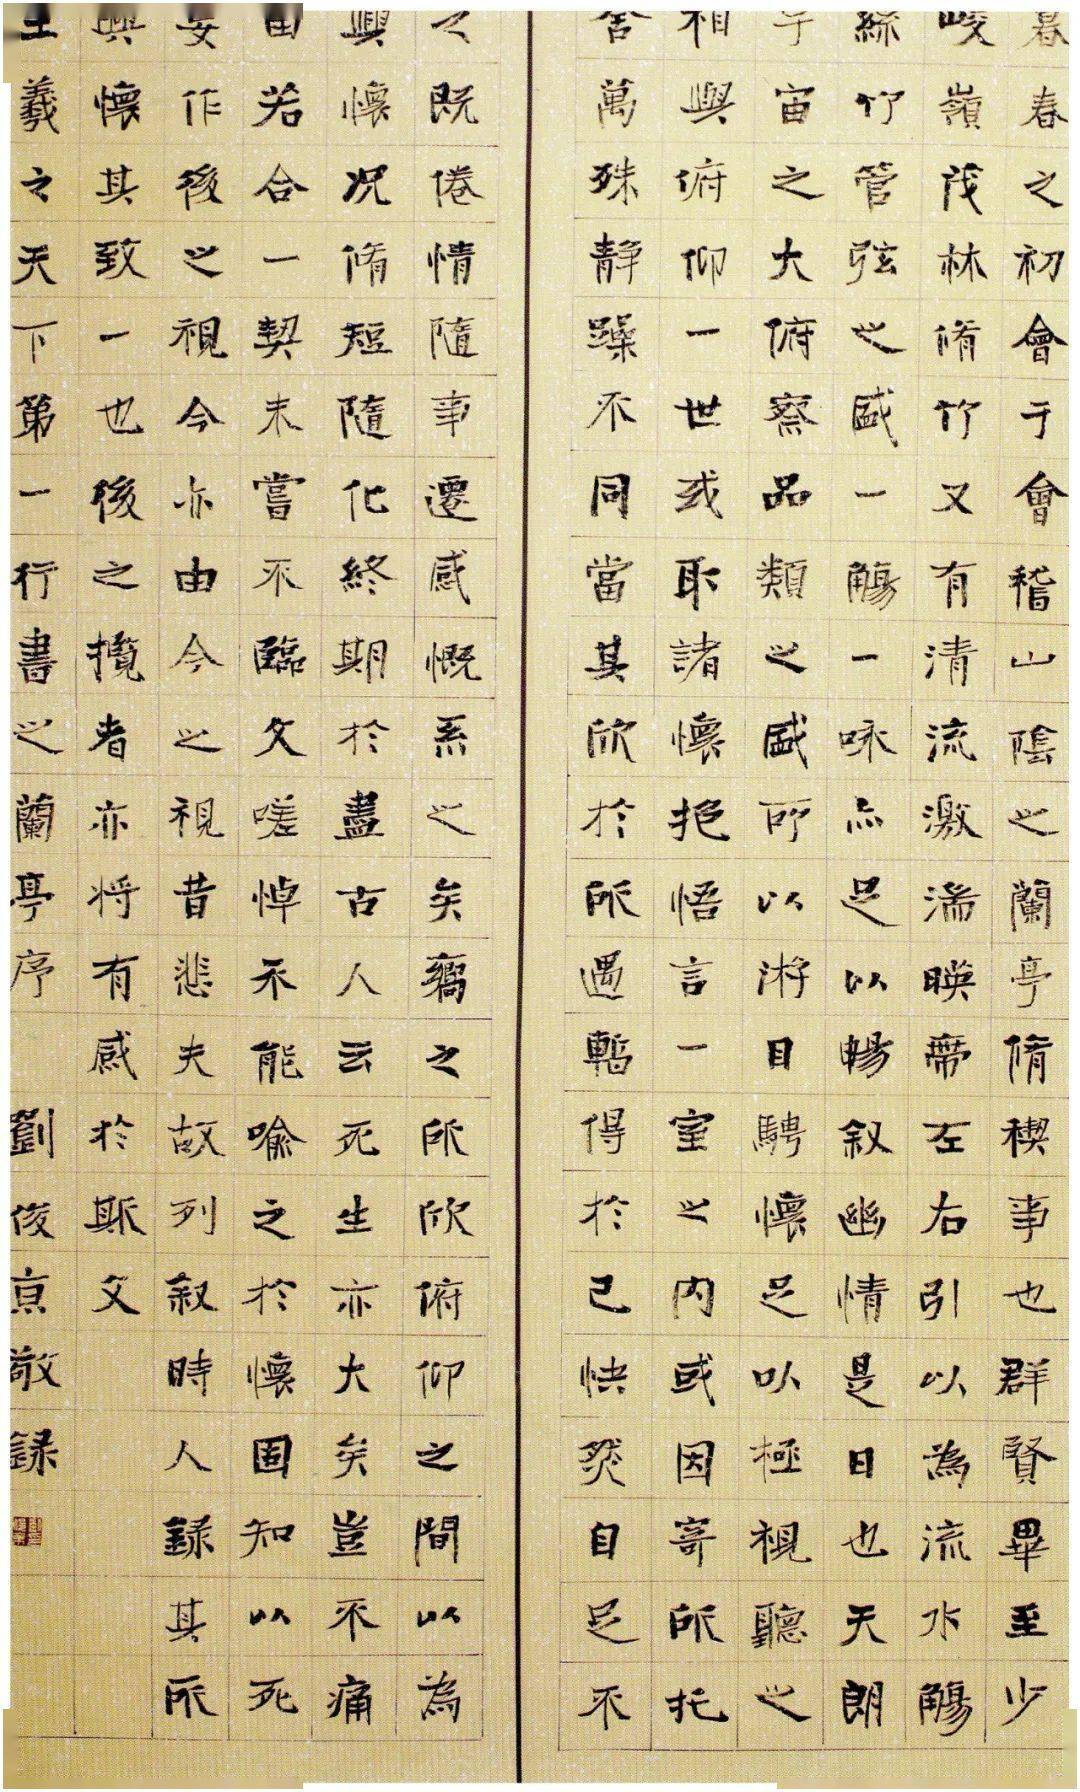 暮春之初會于會稽山陰之蘭亭脩禊事也群賢畢至少
峻嶺茂林脩竹又有清流激湍暎帶左右引以為流水觴
絲竹管弦之盛一觴一咏亦足以暢叙幽情是日也天朗
宇宙之大俯察品類之盛所以游目騁懷足以極視聽之
相與俯仰一世或取諸懷抱悟言一室之内或因寄所托
舍萬殊靜躁不同當其欣於所遇暫得於己快然自足不
之既倦情隨事遷感慨系之矣曏之所欣俯仰之間以為
興懷況脩短隨化終期於盡古人云死生亦大矣豈不痛
由若合一契未嘗不臨文嗟悼不能喻之於懷固知以死
妄作後之視今亦由今之視昔悲夫故列叙時人録其所
興懷其致一也後之攬者亦將有感於斯文
王羲之天下第一行書之蘭亭序 劉俊亰敬録